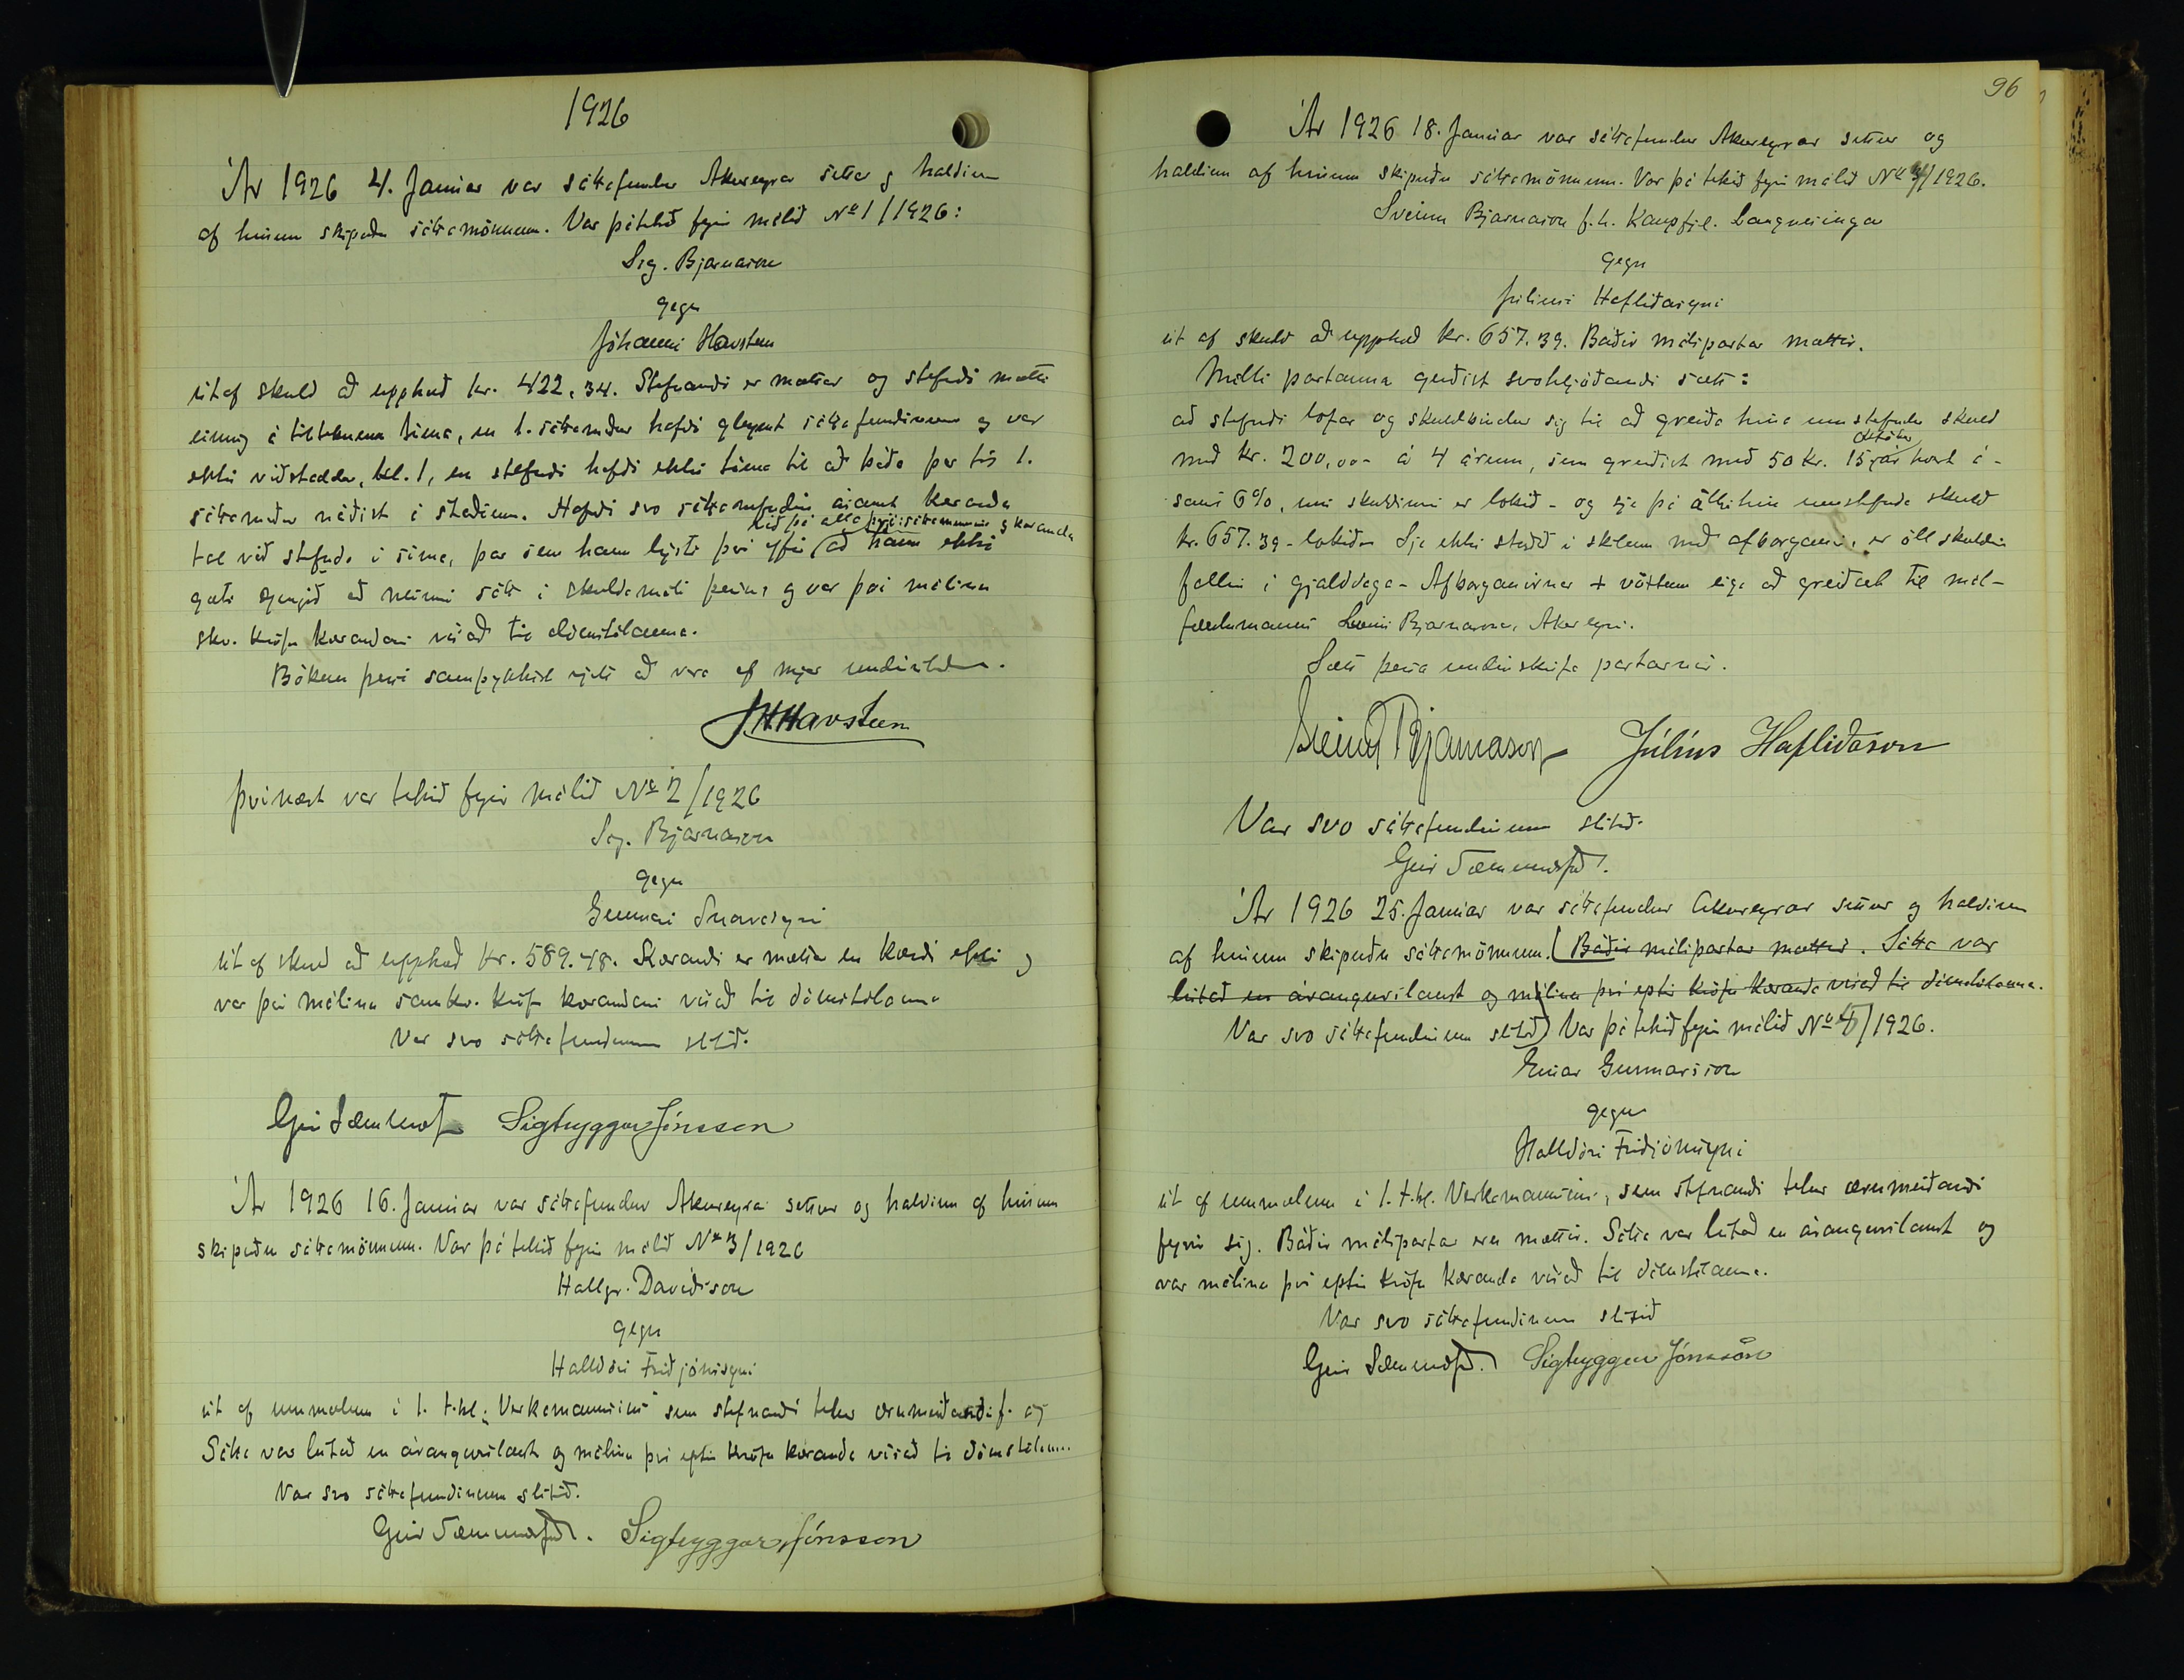 1926
Ár 1926 4. Janúar var sáttafundur Akureyrar settur og haldinn
af hinum skipuðu sáttamönnum. Var þá tekið fyrir málið No 1/1926:
Sig. Bjarnason
gegn
Jóhanni Havsteen
út af skuld að upphæð kr. 422,34. Stefnandi er mættur og stefndi mætti
einnig á tilteknum tíma, en 1. sáttamaður hafði gleymt sáttafundinum og var
ekki viðstaddur, kl. 1, en stefndi hafði ekki tíma til að bíða þar til 1.
sáttamaður náðist á staðinn. Hafði svo sáttanefndin ásamt kæranda
við þá alla þrjá: sáttamennina og kæranda
tal við stefnda í síma, þar sem hann lýsti því yfir að hann ekki
gæti gengið að neinni sátt í skuldamáli þessu og var því málinu
skv. kröfu kærandans vísað til dómstólanna.
Bókun þessi samþykkist rjett að vera af mjer undirrituðum.
JHHavsteen
Þvínæst var tekið fyrir málið No 2/1926
Sig. Bjarnason
gegn
Gunnari Snorrasyni
út af skuld að upphæð kr. 589.48. Kærandi er mættur en kærði ekki og
var því málinu samkv. kröfu kærandans vísað til dómstólanna
Var svo sáttafundinum slitið.
Geir Sæmundss. Sigtryggur Jónsson
Ár 1926 16. Janúar var sáttafundur Akureyrar settur og haldinn af hinum
skipuðu sáttamönnum. Var þá tekið fyrir málið No 3/1926
Hallgr. Davíðsson
gegn
Halldóri Friðjónssyni
út af ummælum í 1. tbl. "Verkamannsins" sem stefnandi telur ærumeiðandi f. sig
Sátta var leitað en árangurslaust og málinu því eptir kröfu kæranda vísað til dómstólanna.
Var svo sáttafundinum slitið.
Geir Sæmundss. Sigtryggur Jónsson
96
Ár 1926 18. Janúar var sáttafundur Akureyrar settur og
haldinn af hinum skipuðu sáttamönnum. Var þá tekið fyrir málið No 4/1926.
Sveinn Bjarnason f.h. Kaupfjel. Langnesinga
gegn
Júlíusi Hafliðasyni
út af skuld að upphæð kr. 657.39. Báðir málspartar mættir.
Milli partanna gerðist svohljóðandi sætt:
að stefndi lofar og skuldbindur sig til að greiða hina umstefndu skuld
október
með kr. 200,00- á 4 árum, sem greiðist með 50 kr. 15. ár hvert á-
samt 6%, uns skuldinni er lokið - og sje þá öll hin umstefnda skuld
kr. 657.39 - lokið. Sje ekki staðið í skilum með afborganir, er öll skuldin
fallin í gjalddaga - Afborganirnar + vöxtum eiga að greiðast til mál-
færslumanns Sveins Bjarnasonar, Akureyri.
Sætt þessa undirskrifa partarnir.
Sveinn Bjarnason Júlíus Hafliðason
Var svo sáttafundinum slitið.
Geir Sæmundss.
Ár 1926 25. Janúar var sáttafundur Akureyrar settur og haldinn
af hinum skipuðu sáttamönnum. (Báðir málspartar mættir. Sátta var
leitað en árangurslaust og málinu því eptir kröfu kæranda vísað til dómstólanna.
Var svo sáttafundinum slitið) Var þá tekið fyrir málið No 4/1926.
Einar Gunnarsson
gegn
Halldóri Friðjónssyni
út af ummælum í 1. tbl. Verkamannsins, sem stefnandi telur ærumeiðandi
fyrir sig. Báðir málspartar eru mættir. Sátta var leitað en árangurslaust og
var málinu því eptir kröfu kæranda vísað til dómstólanna.
Var svo sáttafundinum slitið
Geir Sæmundss. Sigtryggur Jónsson